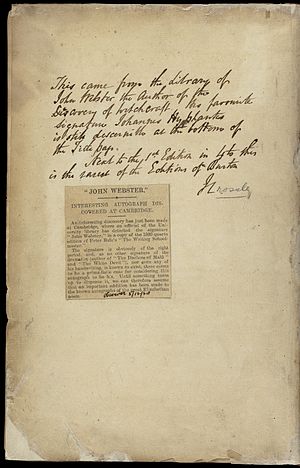 This came from the library of
John Webster the Author of the
Discovery of Witchcraft. His favourite
Signature Johannes Hyphantes
is still discernible at the bottom of
the Title page.
Next to the 1st Edition in 4to this
is the rarest of the Editions of Burton
J Crossley
"JOHN WEBSTER."
INTERESTING AUTOGRAPH DIS-
COVERED AT CAMBRIDGE.
An interesting discovery has just been made
at Cambridge, where an official of the Uni-
versity library has detected the signature
"John Webster," in a copy of the 1590 quarto
edition of Peter Bale's "The Writing School-
master."
The signature is obviously of the right
period, and, as no other signature of the
dramatist (author of "The Duchess of Malfi"
and "The White Devil"), nor even any of
his handwriting, is known to exist, there seems
to be a prima-facie case for considering this
autograph to be his. Until something turns
up to disprove it, we can therefore assume
that an important addition has been made to
the known autographs of the great Elizabethan
poets.